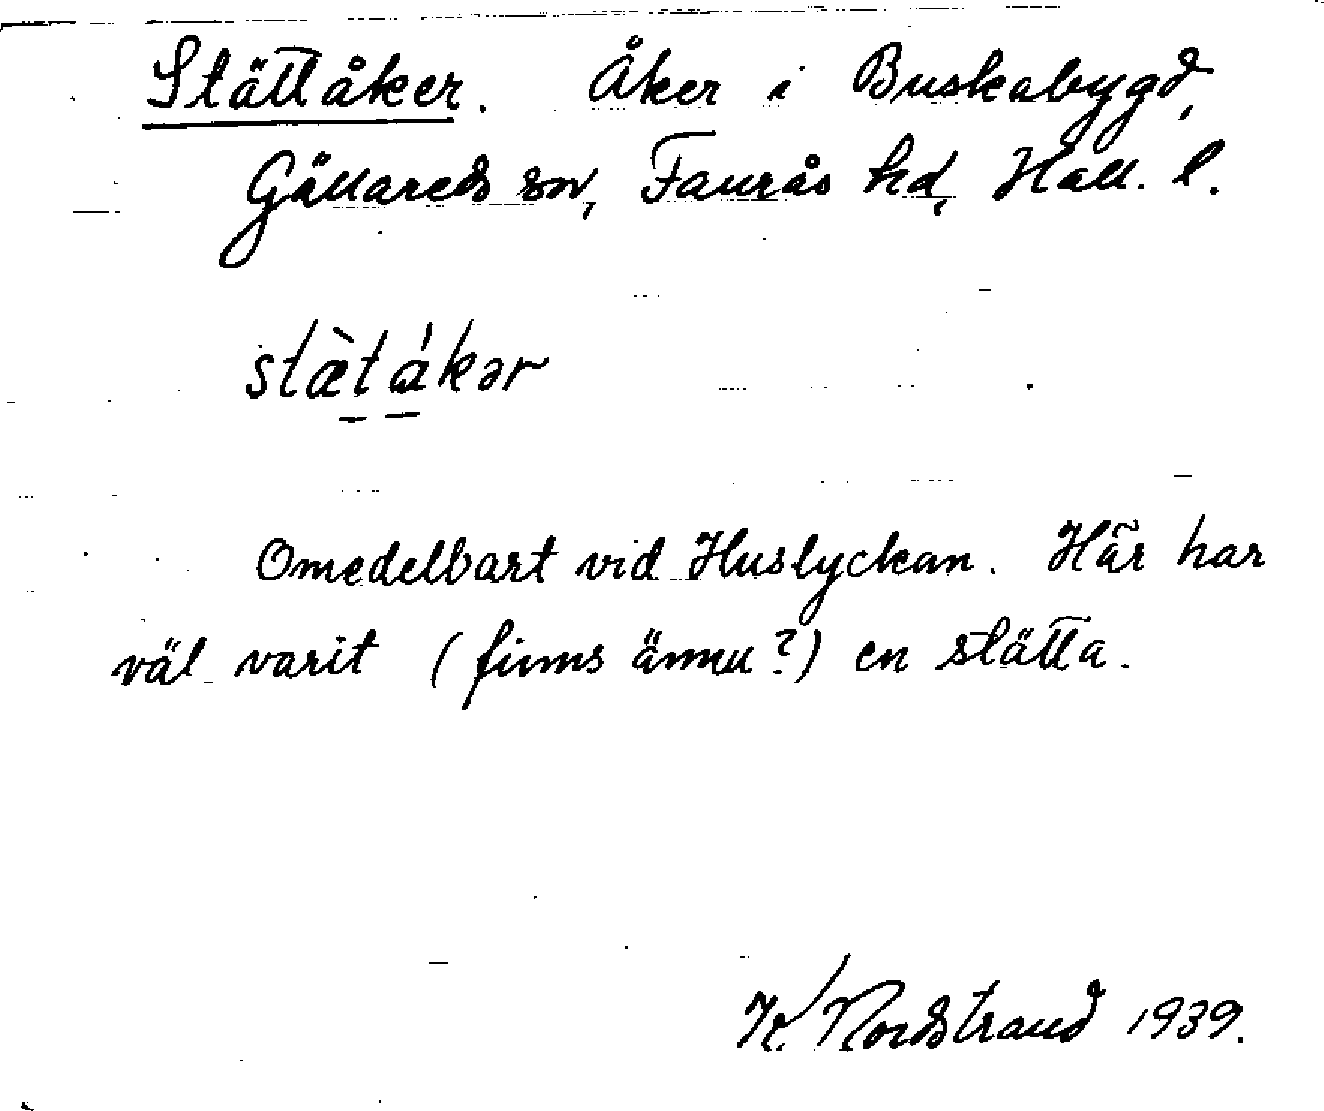 Stättåker. Åker i Buskabygd,
Gällareds sn, Faurås hd, Hall. l.
stæ̀tákər
Omedelbart vid Huslyckan. Här har
väl varit (finns ännu?) en stätta.
K Nordstrand 1939.